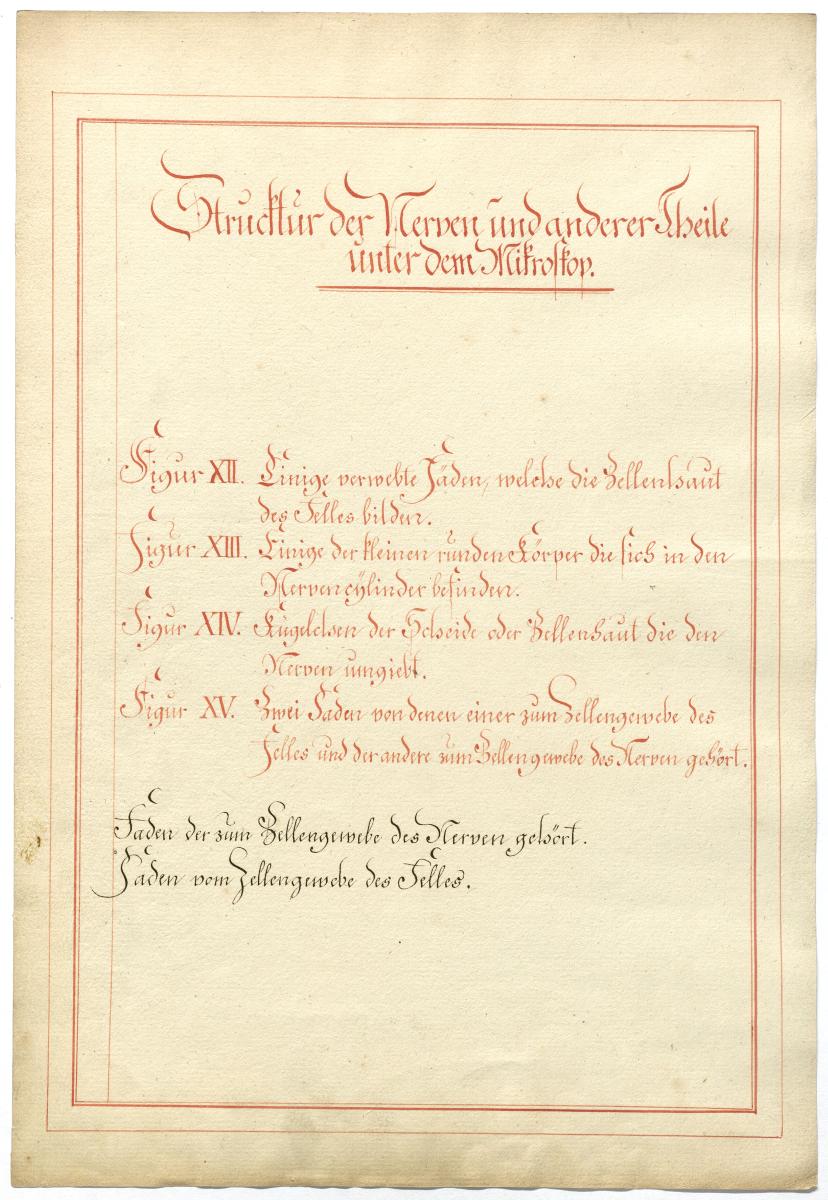 Strucktur der Nerven und anderer Theile
unter dem Mikroskop.
Figur XII. Einige verwebte Fäden, welche die Zellenhaut
des Felles bilden.
Figur XIII. Einige der kleinen runden Körper die sich in den
Nervencylinder befinden.
Figur XIV. Kügelchen der Scheide oder Zellenhaut die den
Nerven umgiebt.
Figur XV. Zwei Faden von denen einer zum Zellengewebe des
Felles und der andere zum Zellengewebe des Nerven gehört.
Faden der zum Zellengewebe des Nerven gehört.
Faden vom Zellengewebe des Felles.